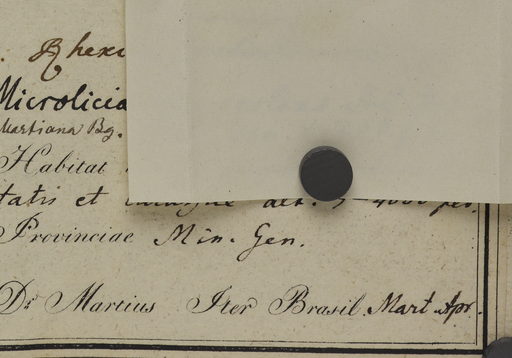 Rhexi
Microlicia
Martiana Bg.
Habitat
tatis et alt. 3-4000 ped.
Provinciae Min. Gen.
Dr. Martius Iter Brasil. Mart. Apr.